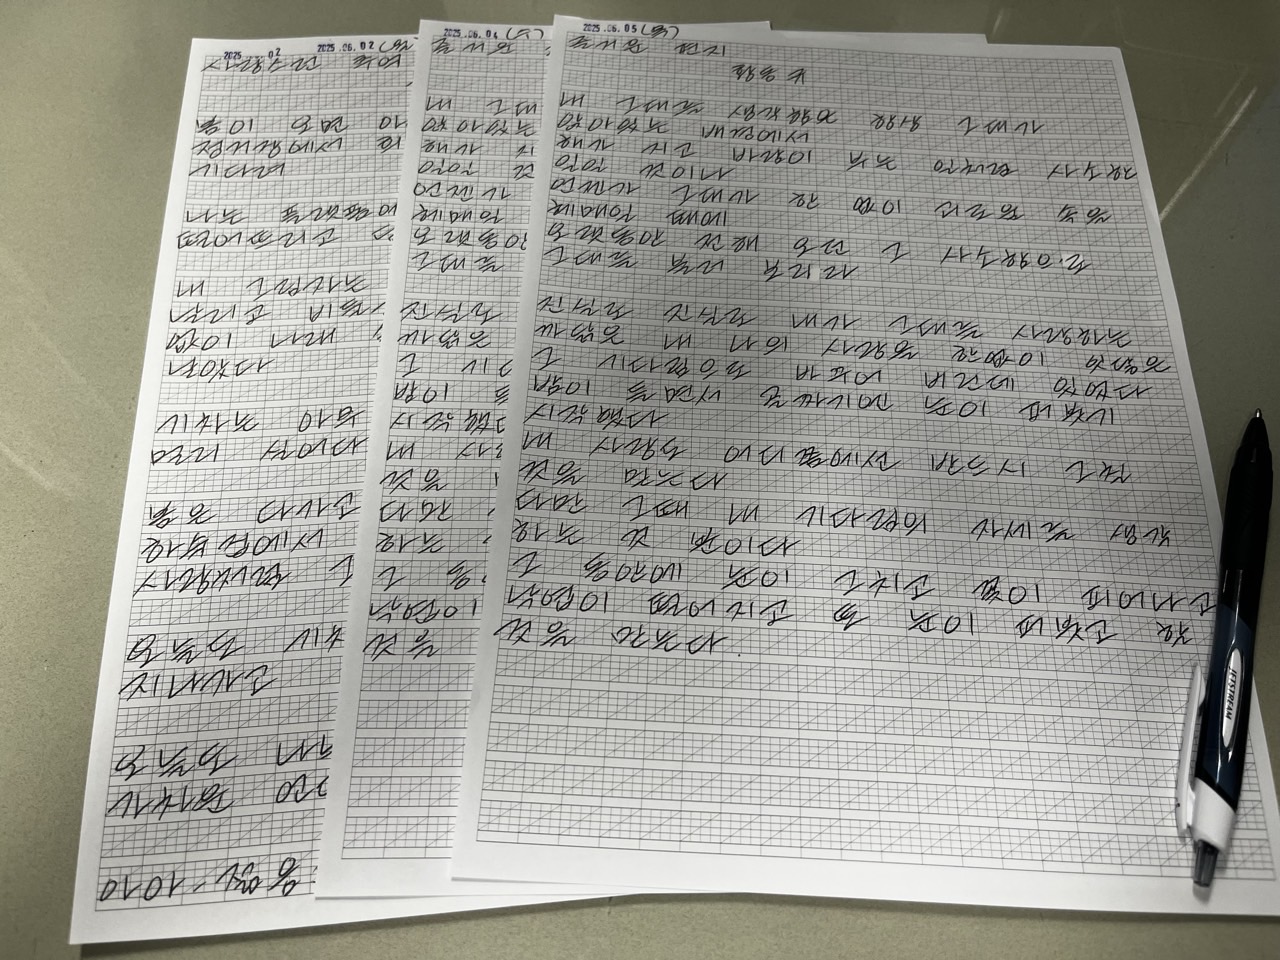 2025. 02 2025.06.02
사랑스런 추억
봄이 오면 아
정거장에서 희
기다려
나는 플랫폼에
떨어뜨리고
내 그림자는
날리고 비둘
없이 나래
날았다
기차는 아무
멀리 실어다
봄은 다가고
하숙집에서
사랑처럼 그
오늘도 기차
지나가고
오늘도 나
가차운 언
아아 젊음
2025.06.04
즐거운
내 그대
앉아있는
해가 지
일일 것
언젠가
헤매일
오랫동안
그대를
진실로
까닭은
그 기다
밤이 들
시작했다
내 사
것을
다만
하는
그 동
낙엽이
것을
2025.06.05 (목)
즐거운 편지
황동규
내 그대를 생각함은 항상 그대가
앉아있는 배경에서
해가 지고 바람이 부는 일처럼 사소한
일일 것이나
언젠가 그대가 한 없이 괴로움 속을
헤매일 때에
오랫동안 전해 오던 그 사소함으로
그대를 불러 보리라
진실로 진실로 내가 그대를 사랑하는
까닭은 내 나의 사랑을 한없이 잇닮은
그 기다림으로 바꾸어 버린데 있었다
밤이 들면서 골짜기엔 눈이 퍼붓기
시작했다
내 사랑도 어디쯤에선 반드시 그칠
것을 믿는다
다만 그때 내 기다림의 자세를 생각
하는 것 뿐이다
그 동안에 눈이 그치고 꽃이 피어나고
낙엽이 떨어지고 또 눈이 퍼붓고 할
것을 믿는다.
JETSTREAM